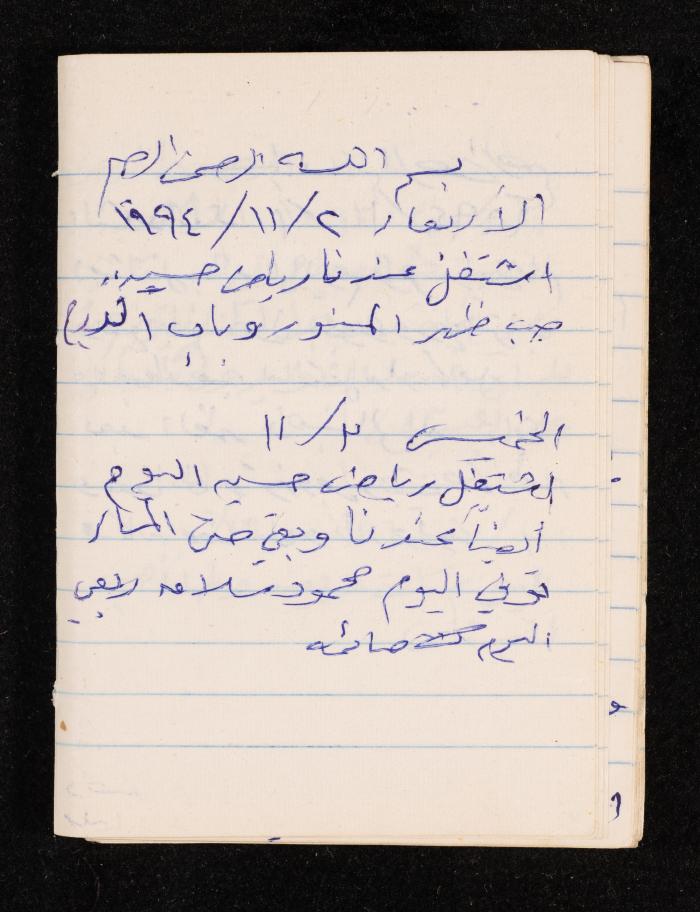 بسم الله الرحمن الرحيم
الأربعاء ٢/١١/١٩٩٤
اشتغل عندنا رياض حسين
صب ظهر المنور وباب
الخميس ٣/١١
اشتغل رياض حسين اليوم
أيضاً عندنا وبقي حتى المساء
توفي اليوم محمود سلامه
اليوم صائمه